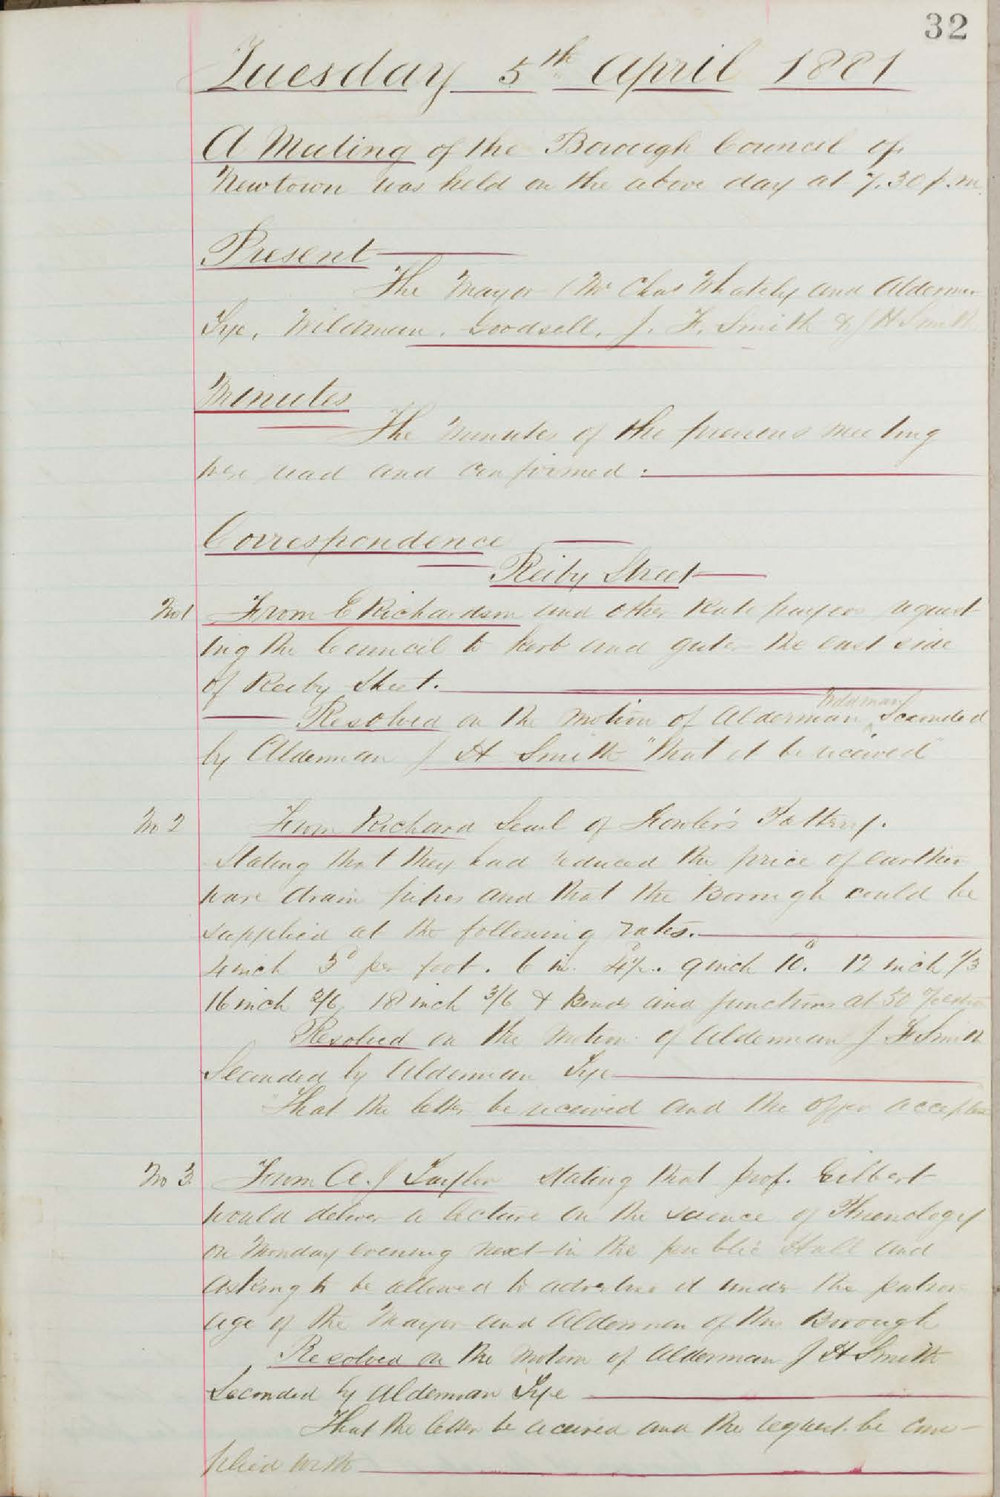 32
Tuesday 5th April 1881
A Meeting of the Borough Council of
Newtown was held on the above day at 7.30 p.m.
Present
The Mayor (Mr Chas Whately and Aldermen
Tye, Wildman, Goodsell, J. F. Smith & J H Smith
Minutes
The minutes of the previous meeting
were read and confirmed :
Correspondence
Reiby Street
No 1 From E Richardson and other Rate payers request
ing the Council to kerb and guter the east side
of Reiby Street.
Wildman
Resolved on the motion of Alderman Seconded
by Alderman J H Smith "That it be received"
No 2 From Richard Searl of Fowler's Pottery.
Stating that they had reduced the price of earthen
ware drain pipes and that the Borough could be
supplied at the following rates.
4 inch 3d per foot. 6 in. 9 inch 10d. 12 inch 1/3
16 inch 2/6 18 inch 3/6 & bends and junctions at 50
Resolved on the motion of Alderman J F Smith
Seconded by Alderman Tye
That the letter be received and the offer accepted
No 3 From A. J Taylor stating that prof. Gilbert
would deliver a lecture on the science of Phrenology
on Monday evening next in the public Hall and
asking to be allowed to advertise it under the patron
age of the Mayor and Aldermen of the Borough
Resolved on the motion of Alderman J H Smith
Seconded by Alderman Tye
That the letter be received and the request be com-
plied with